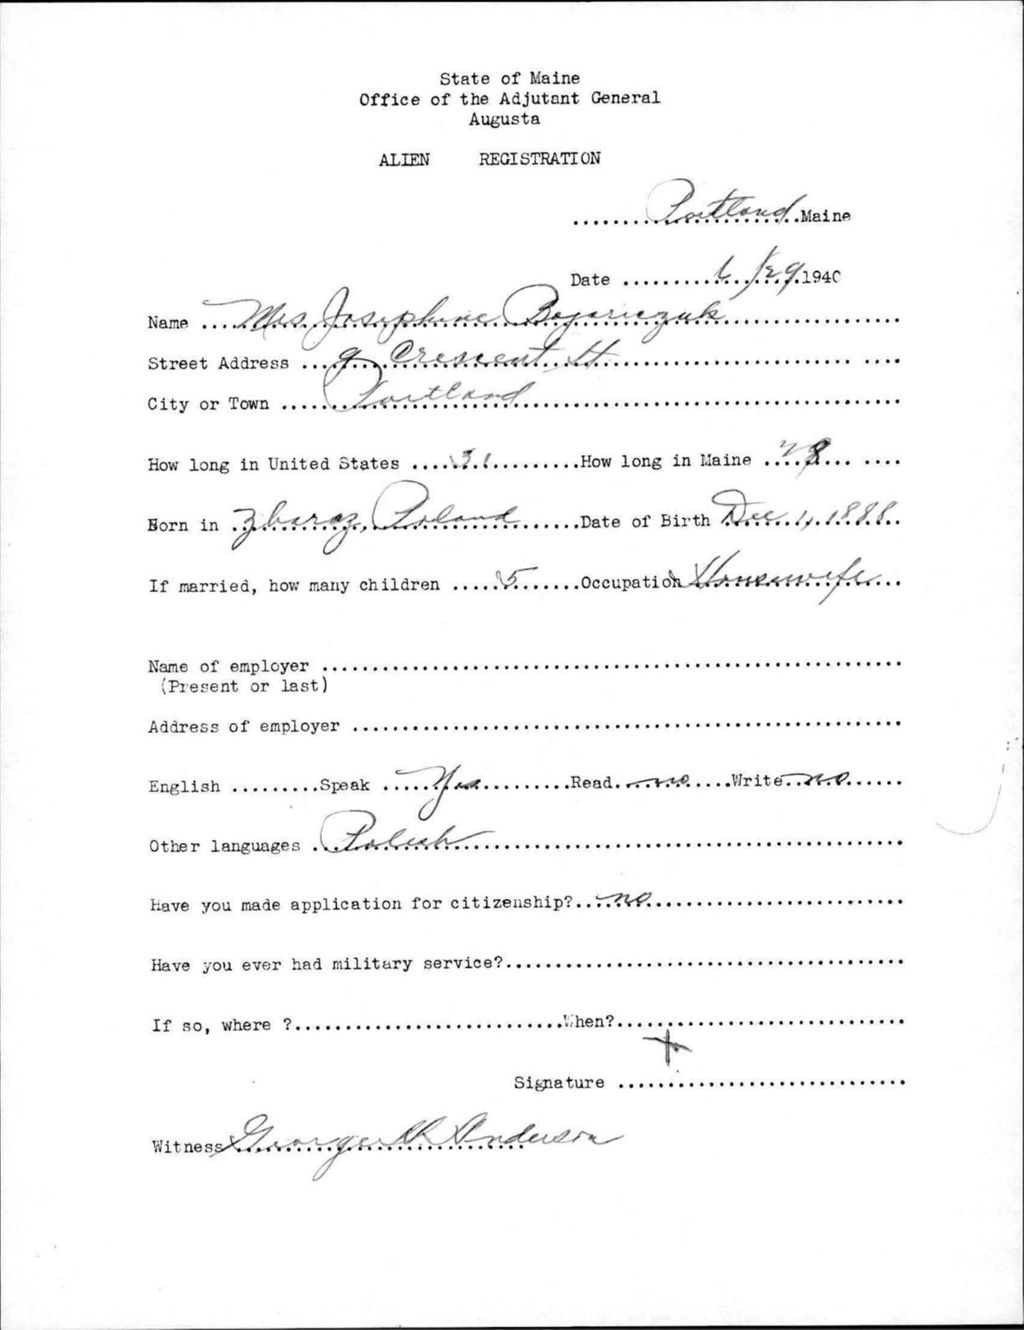 State of Maine
Office of the Adjutant General
Augusta
ALIEN REGISTRATION
........Portland..Maine
Date ..........6/29.1940
Name ....Mrs Josephine Bojarczuk....................
Street Address ....9 Crescent St...........................
City or Town .....Portland.....................................
How long in United States ....31..........How long in Maine ....28... ....
Born in .Zbaraz, Poland.......Date of Birth Dec. 1, 1888..
If married, how many children .....5.......Occupation Housewife...
Name of employer ............................................................
(Present or last)
Address of employer .........................................................
English .........Speak .....Yes...........Read..no.....Write..no......
Other languages ..Polish..............................................
Have you made application for citizenship?....no..........................
Have you ever had military service?.........................................
If so, where ?...........................When?..............................
+
Signature ..............................
Witness George Anderson